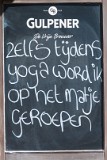 GULPENER
De Vrije Brouwer
ZELFS TIJDENS
YOGA WORD IK
OP HET MATJE
GEROEPEN